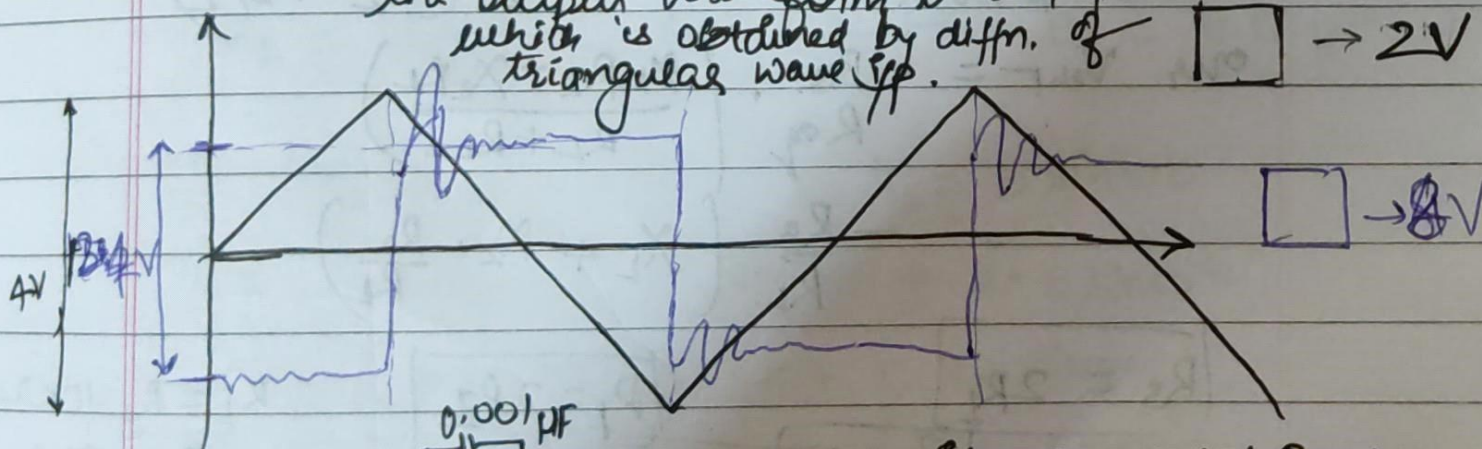 which is obtained by diffn. of
triangular wave i/p.
→ 2V
→ 8V
4V
0.001 μF